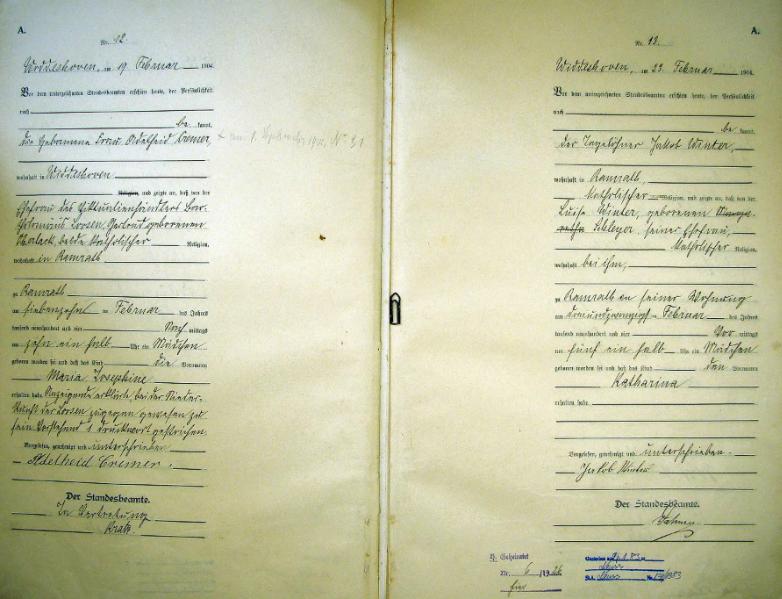 A.
Nr. 12.
Widdeshoven, am 19. Februar 1904.
Vor dem unterzeichneten Standesbeamten erschien heute, der Persönlichkeit
nach
be kannt,
die Hebamme Frau Adelheid Cremer,
wohnhaft in Widdeshoven
Religion, und zeigte an, daß von der
Ehefrau des
Lorsen, Gertrud geborenen
beide katholischer Religion,
wohnhaft in Ramrath
zu Ramrath
am siebenzehn ten Februar des Jahres
tausend neunhundert und vier Nach mittags
um zehn ein halb Uhr ein Mädchen
geboren worden sei und daß das Kind die Vornamen
Maria Josephine
erhalten habe. Anzeigende erklärte bei der Nieder-
kunft der Lorsen zugegen gewesen zu
sein. Vorstehend 1 Druckwort gestrichen.
Vorgelesen, genehmigt und unterschrieben
Adelheid Cremer.
Der Standesbeamte.
In Vertretung
A.
Nr. 13.
Widdeshoven, am 23. Februar 1904.
Vor dem unterzeichneten Standesbeamten erschien heute, der Persönlichkeit
nach
be kannt,
der Tagelöhner Jakob Winter,
wohnhaft in Ramrath
katholischer Religion, und zeigte an, daß von der
Luise Winter, geborenen
Schleyer, seiner Ehefrau,
katholischer Religion,
wohnhaft bei ihm,
zu Ramrath in seiner Wohnung
am dreiundzwanzigsten Februar des Jahres
tausend neunhundert und vier Vor mittags
um fünf ein halb Uhr ein Mädchen
geboren worden sei und daß das Kind den Vornamen
Katharina
erhalten habe.
Vorgelesen, genehmigt und unterschrieben.
Jakob Winter
Der Standesbeamte.
Geheiratet
Nr. 6/1926
hier